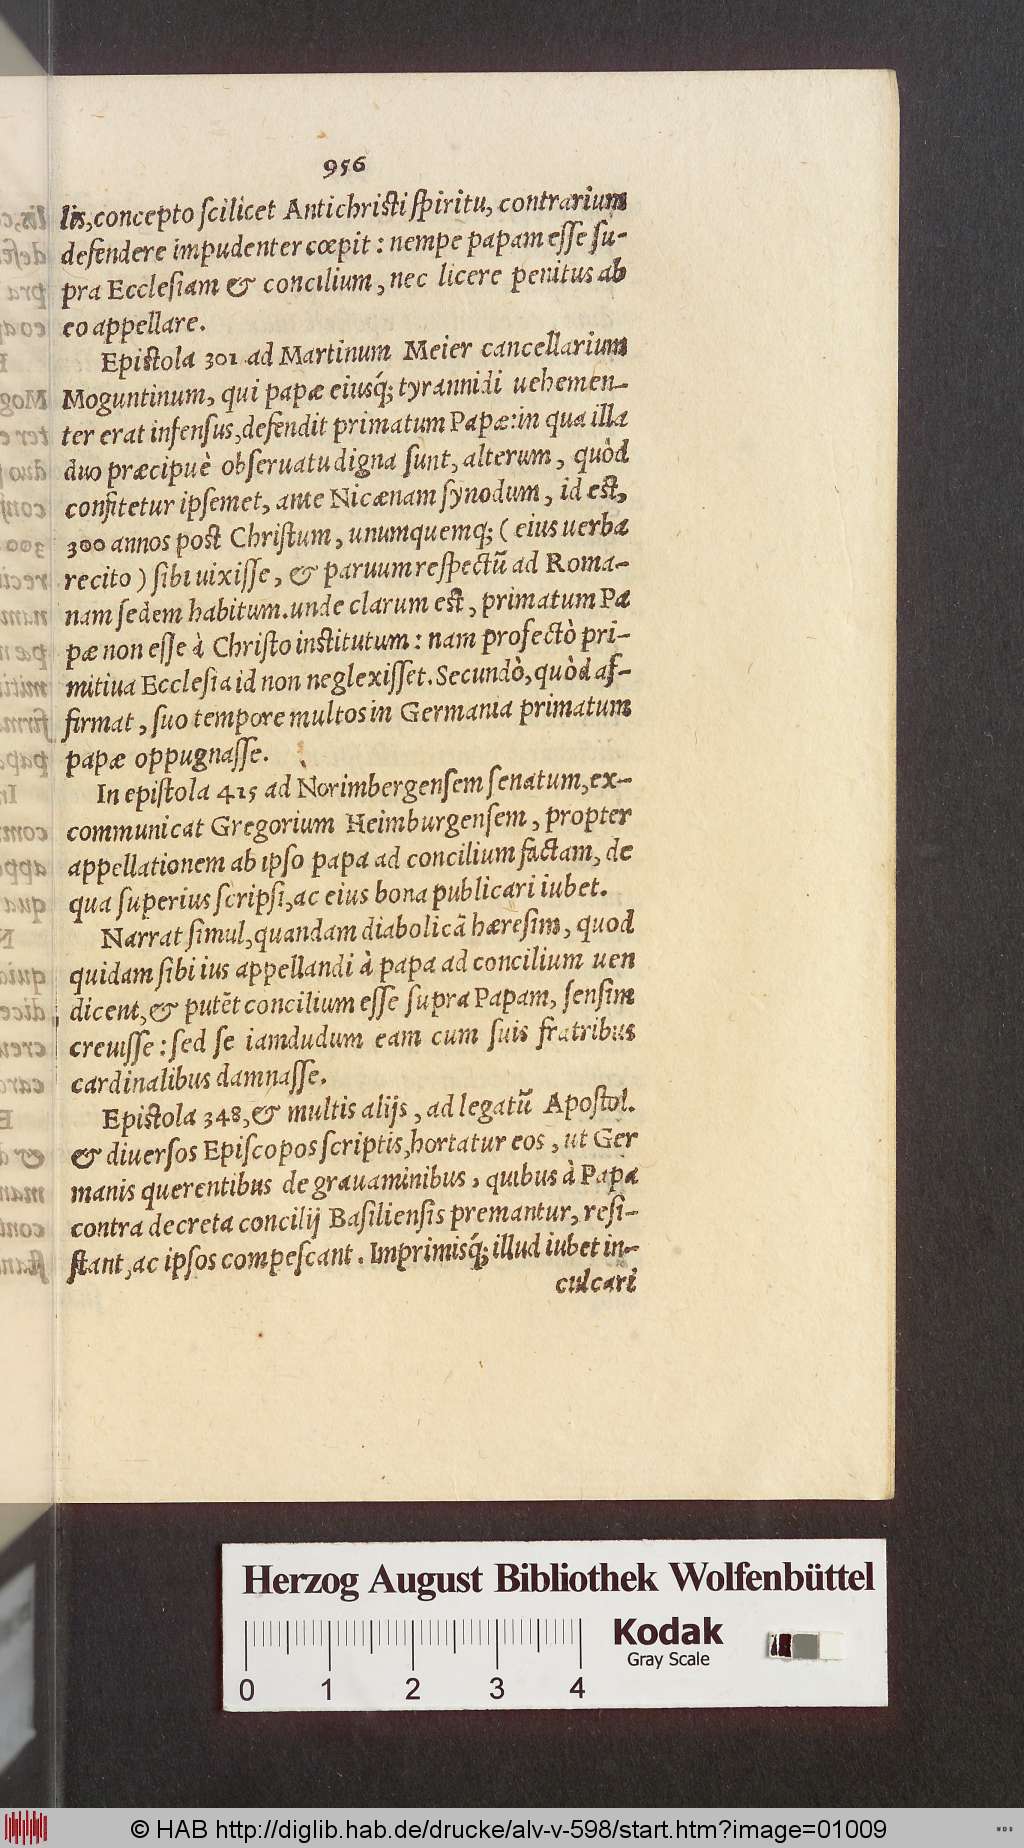 956
lis,concepto ſcilicet Antichriſti ſpiritu, contrarium
defendere impudenter cœpit : nempe papam eſſe ſu-
pra Eccleſiam & concilium, nec licere penitus ab
eo appellare.
Epiſtola 301 ad Martinum Meier cancellarium
Moguntinum, qui papæ eiusq́; tyrannidi uehemen-
ter erat infenſus,defendit primatum Papæ:in qua illa
duo præcipuè obſeruatu digna ſunt, alterum, quòd
confitetur ipſemet, ante Nicænam ſynodum, id eſt,
300 annos poſt Chriſtum, unumquemq; ( eius uerba
recito ) ſibi uixiſſe, & paruum reſpectũ ad Roma-
nam ſedem habitum.unde clarum eſt, primatum Pa
pæ non eſſe à Chriſto inſtitutum : nam profectò pri-
mitiua Eccleſia id non neglexiſſet. Secundò, quòd af-
firmat, ſuo tempore multos in Germania primatum
papæ oppugnaſſe.
In epiſtola 415 ad Norimbergenſem ſenatum,ex-
communicat Gregorium Heimburgenſem, propter
appellationem ab ipſo papa ad concilium factam, de
qua ſuperius ſcripſi,ac eius bona publicari iubet.
Narrat ſimul,quandam diabolicã hæreſim, quod
quidam ſibi ius appellandi à papa ad concilium uen
dicent,& putẽt concilium eſſe ſupra Papam, ſenſim
creuiſſe : ſed ſe iamdudum eam cum ſuis fratribus
cardinalibus damnaſſe.
Epiſtola 348,& multis alijs, ad legatũ Apoſtol.
& diuerſos Epiſcopos ſcriptis,hortatur eos, ut Ger
manis querentibus de grauaminibus, quibus à Papa
contra decreta concilij Baſilienſis premantur, reſi-
ſtant,ac ipſos compeſcant. Imprimisq́; illud iubet in-
culcari
Herzog August Bibliothek Wolfenbüttel
Kodak
Gray Scale
0 1 2 3 4
© HAB http://diglib.hab.de/drucke/alv-v-598/start.htm?image=01009